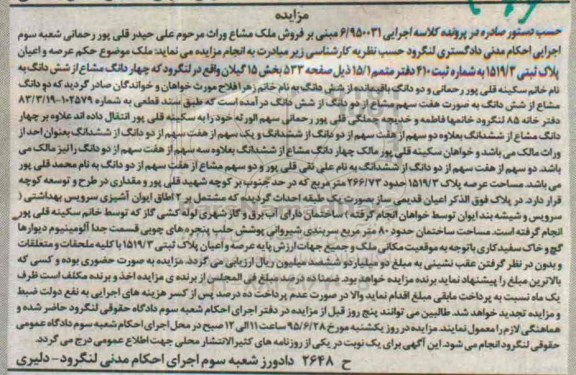 مزایده
حسب دستور صادره در پرونده کلاسه اجرایی ۶/۹۵۰۰۳۱ مبنی بر فروش ملک مشاع وراث مرحوم علی حیدر قلی پور رحمانی شعبه سوم
اجرایی احکام مدنی دادگستری لنگرود حسب نظریه کارشناسی زیر مبادرت به انجام مزایده می نماید: ملک موضوع حکم عرصه واعیان
پلاک ثبتی ۱۵۱۹/۳ به شماره ثبت ۴۱۰ دفتر متمم ۱۵/۱ ذیل صفحه ۵۳۳ بخش ۱۵ گیلان واقع در لنگرود که چهار دانگ مشاع از شش دانگ به
نام خانم سکینه قلی پور رحمانی و دو دانگ باقیمانده از شش دانگ به نام خانم زهرا فلاح مورث خواهان و خواندگان صادر گردید که دو دانگ
مشاع از شش دانگ به صورت هفت سهم مشاع از دو دانگ از شش دانگ در آمده است که طبق سند قطعی به شماره ۱۰۲۵۷۹-۸۳/۳/۱۹
دفتر خانه ۸۵ لنگرود خانمها فاطمه و خدیجه جملگی قلی پور رحمانی سهم الارثه خود را به سکینه قلی پور انتقال داده اند علاوه بر چهار
دانگ مشاع از ششدانگ بعلاوه دو سهم از هفت سهم از دو دانگ از ششدانگ و یک سهم از هفت سهم از دو دانگ از ششدانگ بعنوان احد از
وراث مالک می باشد و خواهان سکینه قلی پور مالک چهار دانگ مشاع از ششدانگ بعلاوه سه سهم از هفت سهم از دو دانگ را نیز مالک می
باشد. دو سهم از هفت سهم از دو دانگ از ششدانگ به نام علی نقی قلی پور و دو سهم مشاع از هفت سهم از دو دانگ به نام محمد قلی پور
می باشد. مساحت عرصه پلاک ۱۵۱۹/۳ حدود ۲۶۶/۷۳ متر مربع که در حد جنوب بر کوچه شهید قلی پور و مقداری در طرح و توسعه کوچه
قرار دارد. در پلاک فوق الذکر اعیان قدیمی ساز بصورت یک طبقه احداث گردیده که مشتمل بر ۲ اطاق ایوان آشپزی سرویس بهداشتی (
سرویس و شیشه بند ایوان توسط خواهان انجام گرفته) ساختمان دارای آب برق و گاز شهری لوله کشی گاز که توسط خانم سکینه قلی پور
انجام گرفته است. مساحت ساختمان حدود ۸۰ متر مربع سربندی شیروانی پوشش حلب پنجره های چوبی قسمت جدا آلومینیوم دیوارها
گچ و خاک سفیدکاری باتوجه به موقعیت مکانی ملک و جمیع جهات ارزش پایه عرصه و اعیان پلاک ثبتی ۱۵۱۹/۳ با کلیه ملحقات و متعلقات
و بدون در نظر گرفتن عقب نشینی به مبلغ دو میلیارد و ششصد میلیون ریال ارزیابی می گردد. مزایده به صورت حضوری بوده و کسی که
بالاترین مبلغ را پیشنهاد نماید برنده مزایده خواهد بود. ضمنا ده درصد مبلغ فی المجلس از برنده ی مزایده اخذ و برنده مکلف است ظرف
یک ماه نسبت به پرداخت مابقی مبلغ اقدام نماید والا در صورت عدم پرداخت ده درصد پس از کسر هزینه های اجرایی به نفع دولت ضبط
و مزایده تجدید خواهد شد. طالبین می توانند پنج روز قبل از مزایده در دفتر اجرای احکام شعبه سوم دادگاه حقوقی لنگرود حاضر شده و
هماهنگی لازم را معمول نمایند. مزایده در روز یکشنبه مورخ ۹۵/۶/۲۸ ساعت ۱۱ الی ۱۲ صبح در محل اجرای احکام شعبه سوم دادگاه عمومی
حقوقی لنگرود انجام می شود. این آگهی برای یک نوبت در یکی از روزنامه های کثیرالانتشار محلی جهت اطلاع عمومی درج می گردد.
ح ۲۶۴۸ دادورز شعبه سوم اجرای احکام مدنی لنگرود- دلیری